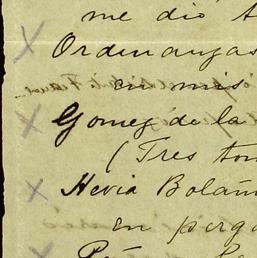 me dió
Ordenanzas
en mis
Gomez de la
(Tres tom
Hevia Bolañ
en perga